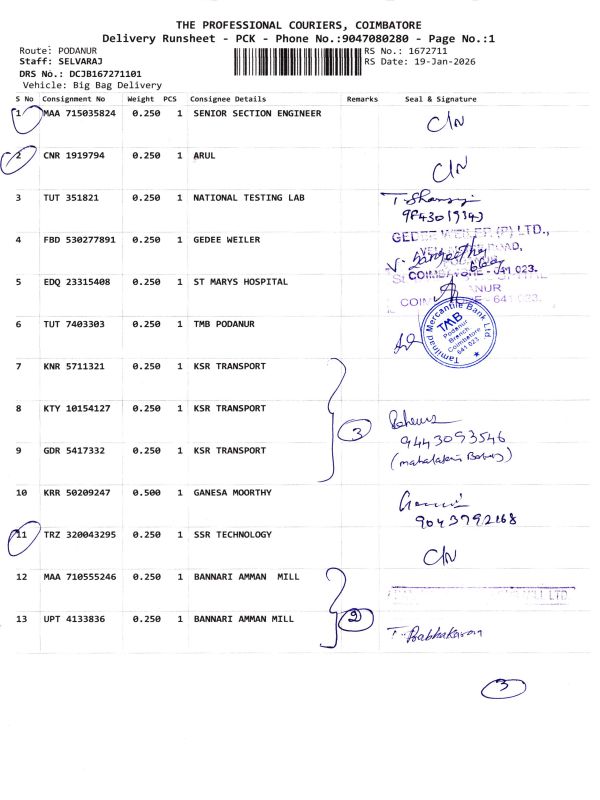 THE PROFESSIONAL COURIERS, COIMBATORE
Delivery Runsheet - PCK - Phone No.:9047080280 - Page No.:1
Route: PODANUR
RS No.: 1672711
Staff: SELVARAJ
RS Date: 19-Jan-2026
DRS No.: DCJB167271101
Vehicle: Big Bag Delivery
S No Consignment No Weight PCS Consignee Details Remarks Seal & Signature
1 MAA 715035824 0.250 1 SENIOR SECTION ENGINEER C/N
2 CNR 1919794 0.250 1 ARUL C/N
3 TUT 351821 0.250 1 NATIONAL TESTING LAB
4 FBD 530277891 0.250 1 GEDEE WEILER GEDEE WEILER (P) LTD.,
COIMBATORE - 641 023.
5 EDQ 23315408 0.250 1 ST MARYS HOSPITAL
6 TUT 7403303 0.250 1 TMB PODANUR
Tamilnad Mercantile Bank Ltd.
TMB
Podanur
Branch
Coimbatore
641 023
7 KNR 5711321 0.250 1 KSR TRANSPORT
8 KTY 10154127 0.250 1 KSR TRANSPORT
3
9443093546
9 GDR 5417332 0.250 1 KSR TRANSPORT
10 KRR 50209247 0.500 1 GANESA MOORTHY
9043792168
11 TRZ 320043295 0.250 1 SSR TECHNOLOGY C/N
12 MAA 710555246 0.250 1 BANNARI AMMAN MILL
13 UPT 4133836 0.250 1 BANNARI AMMAN MILL 2 T. Prabhakaran
3